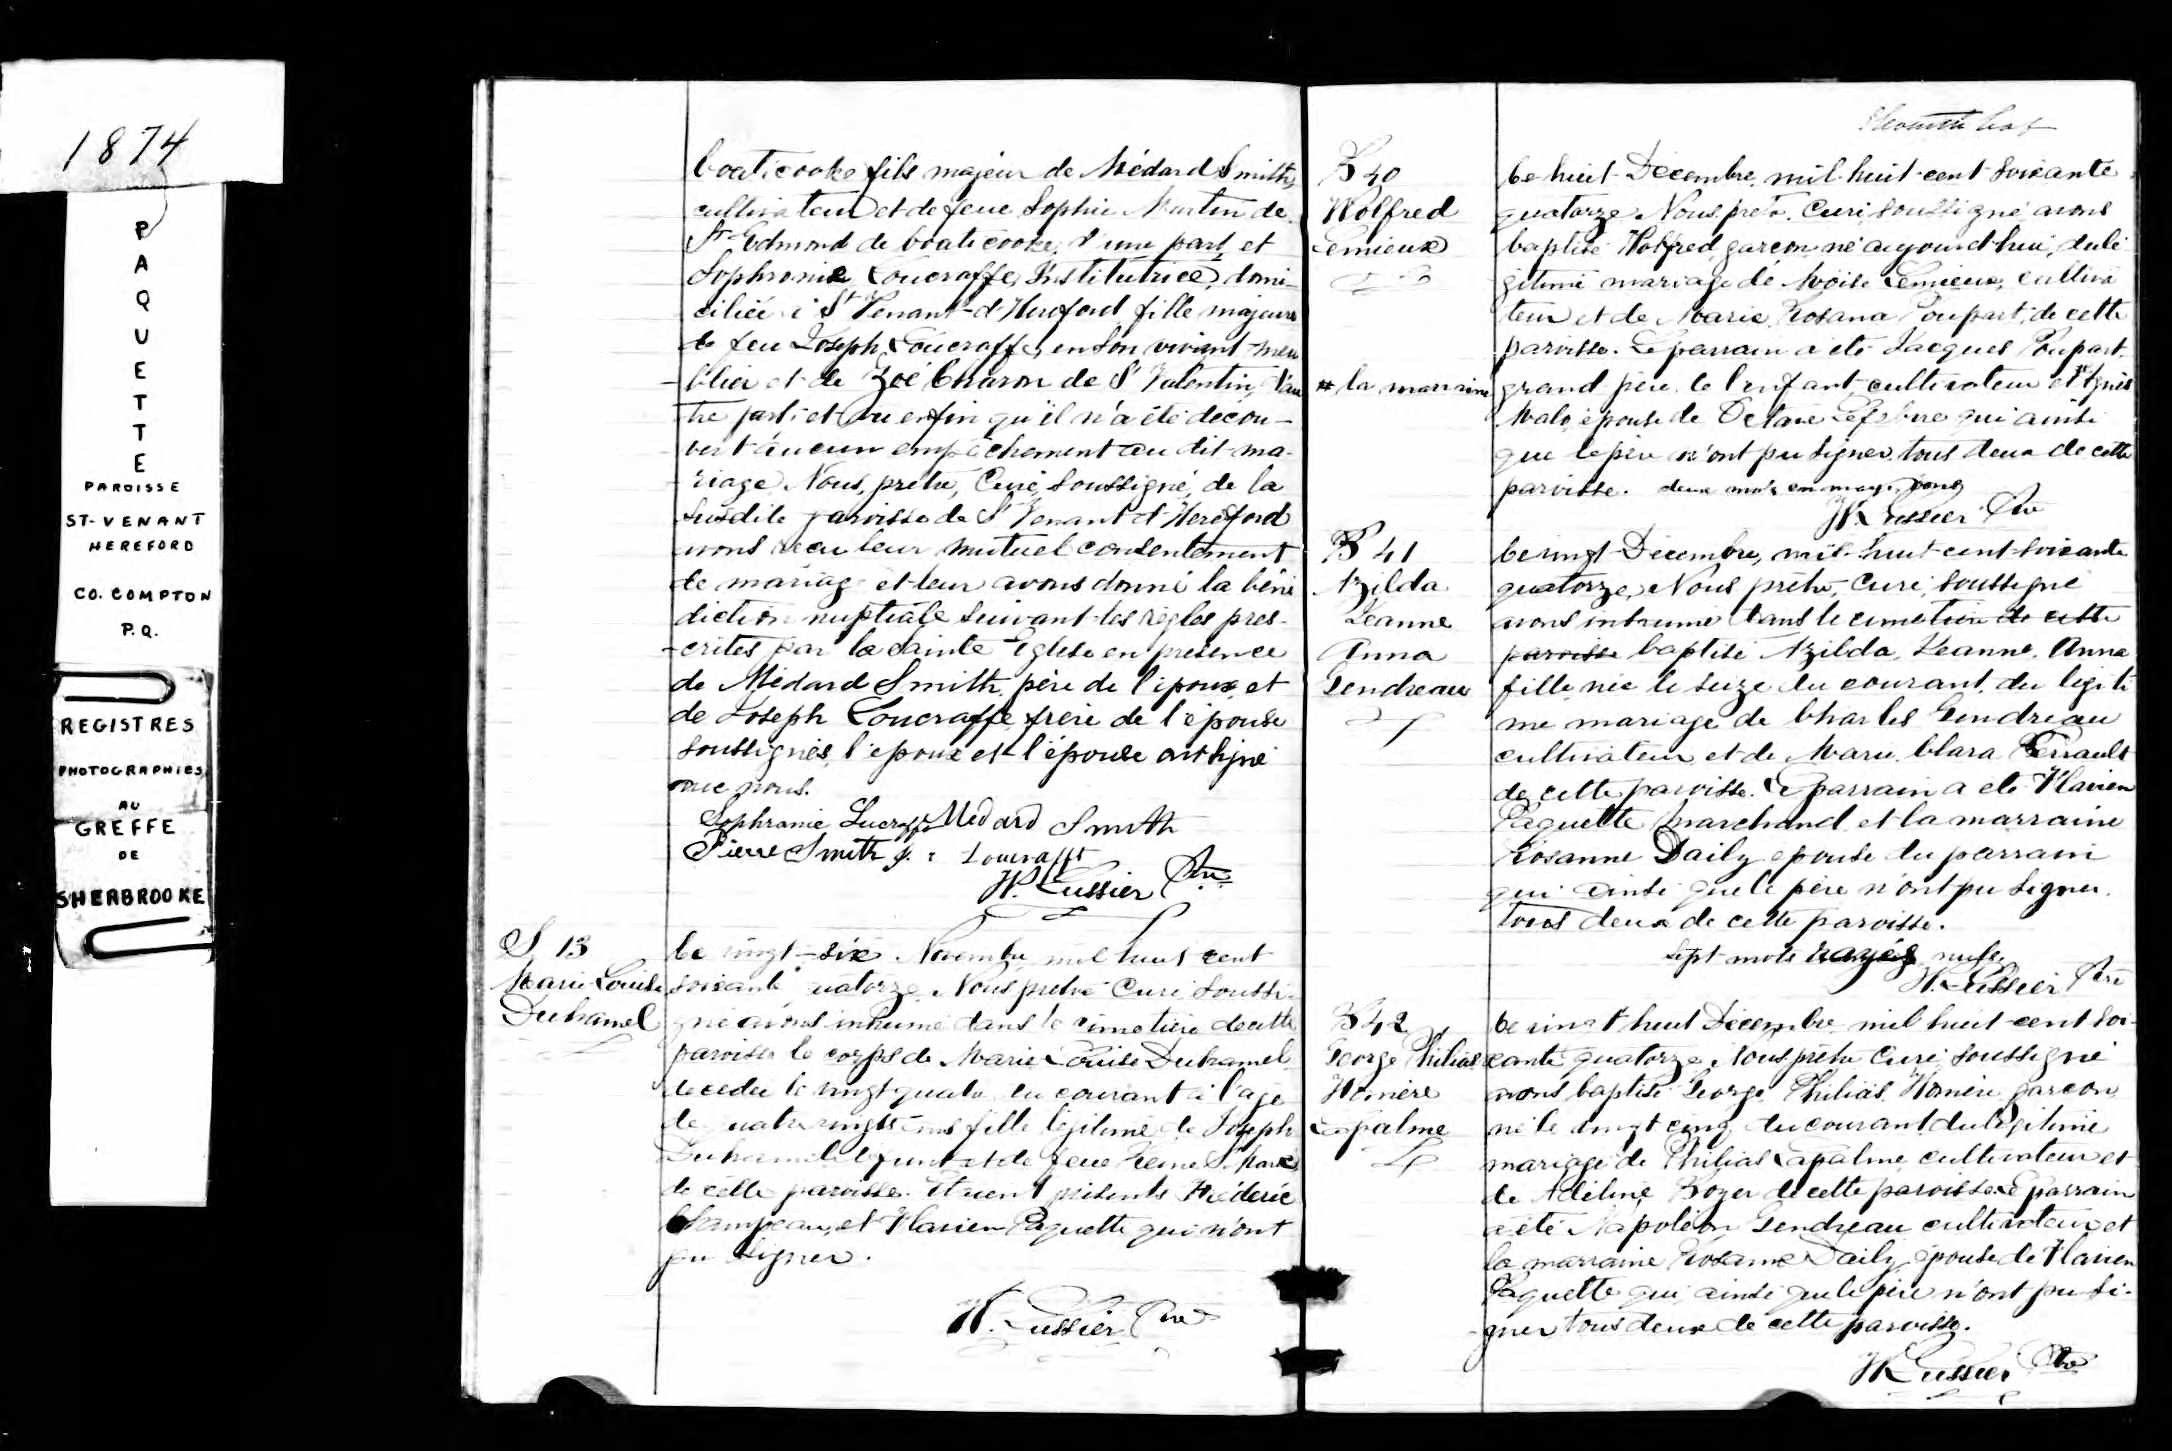 1874
PAQUETTE
PAROISSE
ST-VENANT
HEREFORD
CO. COMPTON
P.Q.
REGISTRES
PHOTOGRAPHIES
AU
GREFFE
DE
SHERBROOKE
Coaticooke fils majeur de Médard Smith,
cultivateur et de feue Sophie Martin de
St Edmond de Coaticooke, d'une part, et
Sophronie Loucraffe, Institutrice, domi-
ciliée à St Venant d'Hereford, fille majeure
de feu Joseph Loucraffe, en son vivant meu
blier et de Zoé Charon de St Valentin, d'au
tre part; et vu enfin qu'il n'a été décou-
vert aucun empêchement au dit ma-
riage Nous, prêtre, Curé, soussigné, de la
susdite paroisse de St Venant d'Hereford
avons reçu leur mutuel consentement
de mariage et leur avons donné la béné
diction nuptiale suivant les règles pres-
-crites par la sainte Eglise en présence
de Médard Smith, père de l'époux, et
de Joseph Loucraffe, frère de l'épouse
soussignés, l'époux et l'épouse ont signé
avec nous.
Sophranie Lucraffe Médard Smith
Pierre Smith Loucrafft
W. Lussier Ptre
S 13
Marie-Louise
Duhamel
Le vingt-six Novembre mil huit cent
soixante quatorze Nous prêtre Curé soussi-
gné avons inhumé dans le cimetière de cette
paroisse le corps de Marie Louise Duhamel
décédée le vingt quatre du courant à l'age
de quatre vingts ans fille légitime de Joseph
Duhamel défunt et de feue
de cette paroisse. Etaient présents Fréderic
Champeau, et Flavien Paquette qui n'ont
pu signer.
W. Lussier Ptre
B 40
Wolfred
Lemieux
Le huit Décembre, mil huit cent soixante
quatorze Nous, prêtre Curé, soussigné avons
baptisé Wolfred, garçon, né aujourd'hui, du lé
gitime mariage de Moïse Lemieux, cultiva
teur et de Marie Rosana Poupart, de cette
paroisse. Le parrain a été Jacques Poupart,
# la marraine
grand père de l'enfant, cultivateur et # Agnès
Malo, épouse de Octave Lefebvre qui ainsi
que le père n'ont pu signer, tous deux de cette
paroisse. deux mots en marge bons
W. Lussier Ptre
B 41
Azilda
Jeanne
Anna
Gendreau
Le vingt Décembre, mil huit cent soixante
quatorze, Nous prêtre, Curé, soussigné
avons inhumé dans le cimetière de cette
paroisse baptisé Azilda, Jeanne, Anna
fille née le seize du courant, du légiti
me mariage de Charles Gendreau
cultivateur et de Marie Clara Perrault
de cette paroisse. Le parrain a été Flavien
Paquette marchand et la marraine
Rosanne Daily épouse du parrain
qui ainsi que le père n'ont pu signer.
tous deux de cette paroisse.
sept mots rayés nuls
W. Lussier Ptre
B 42
George Philias
Homère
Lapalme
Le vingt huit Décembre mil huit cent soi-
xante quatorze Nous prêtre Curé soussigné
avons baptisé George, Philias, Homère, garçon
né le vingt cinq du courant du légitime
mariage de Philias Lapalme cultivateur et
de Adéline Boyer de cette paroisse Le parrain
a été Napoléon Gendreau cultivateur et
la marraine Rosanne Daily, épouse de Flavien
Paquette qui ainsi que le père n'ont pu si-
gner tous deux de cette paroisse.
W. Lussier Ptre